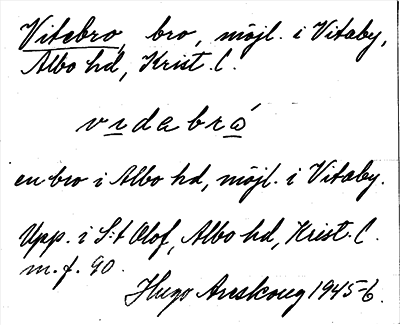 Vitebro, bro, möjl. i Vitaby,
Albo hd, Krist. L.
vıdabrá
en bro i Albo hd, möjl. i Vitaby.
Upp. i S:t Olof, Albo hd, Krist. L.
m. f. 90.
Hugo Areskoug 1945-6.